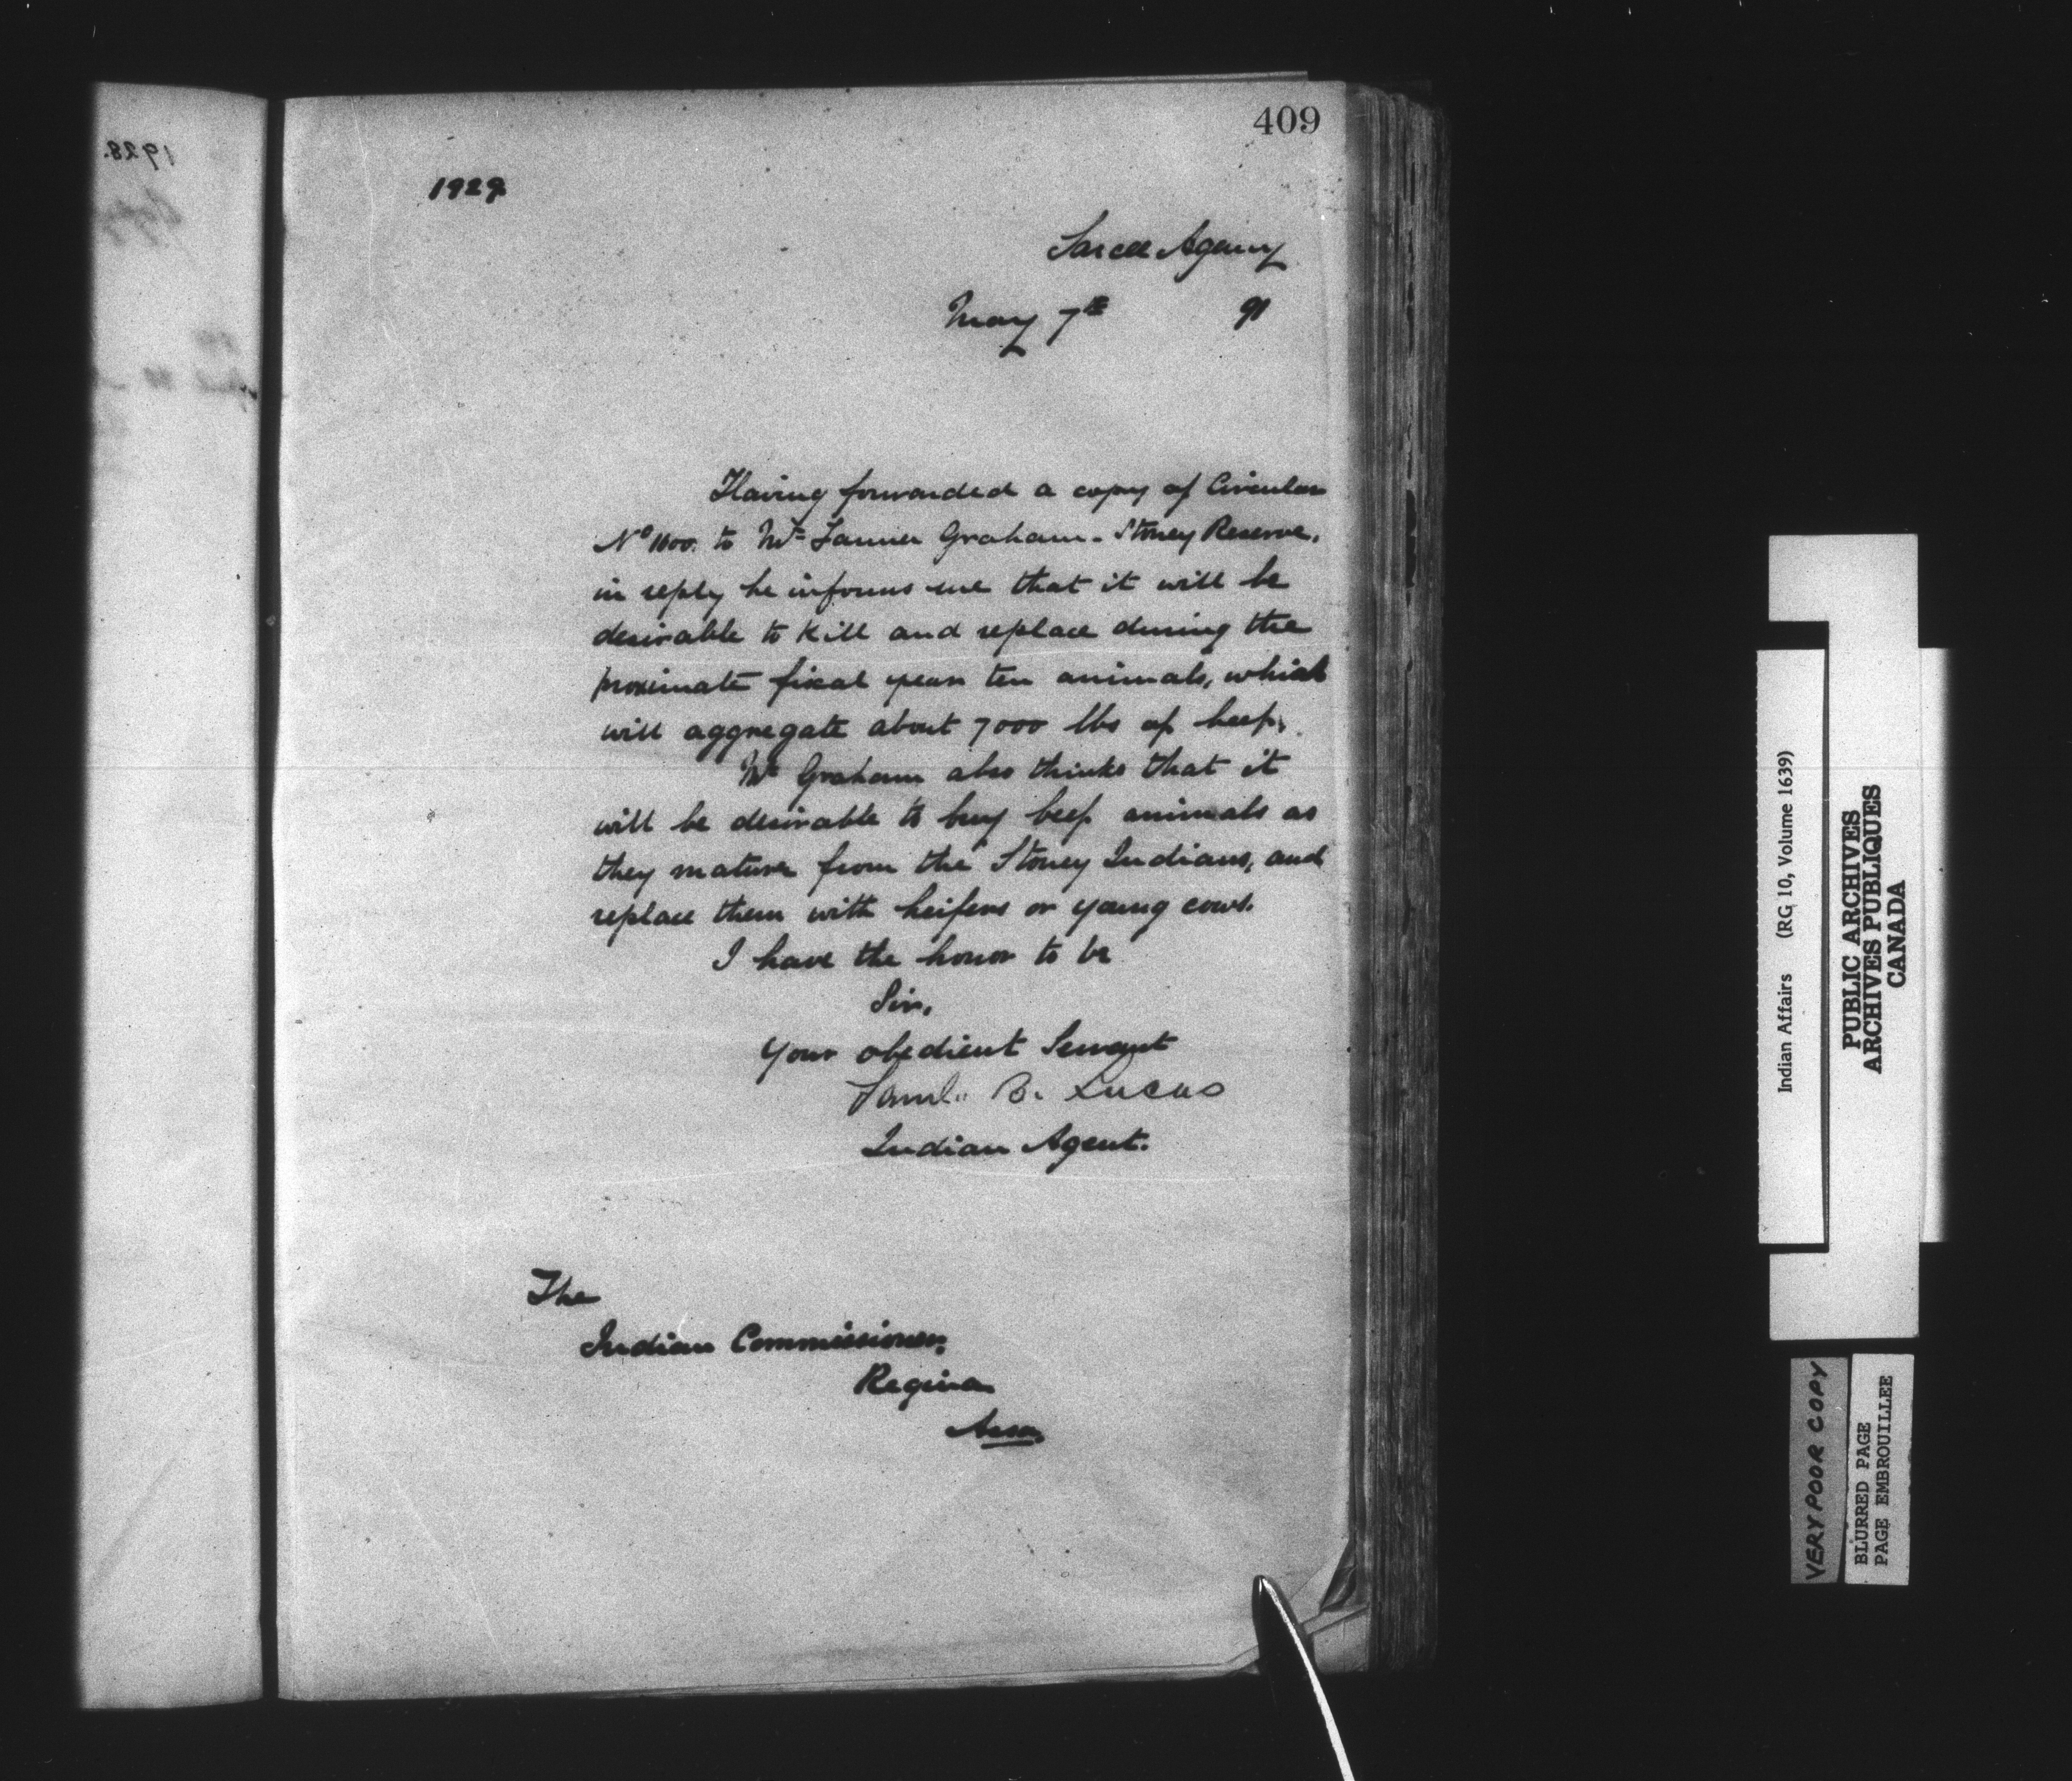 409
1929
Sarcee Agency
May 7th 91
Having forwarded a copy of Circular
No 1600. to Mr Farmer Graham - Stoney Reserve,
in reply he informs me that it will be
desirable to kill and replace during the
proximate fiscal year ten animals, which
will aggregate about 7000 lbs of beef.
Mr Graham also thinks that it
will be desirable to buy beef animals as
they mature from the Stoney Indians, and
replace them with heifers or young cows.
I have the honor to be
Sir,
Your obedient Servant
Saml. B. Lucas
Indian Agent.
The
Indian Commissioner,
Regina
Assa.
1928.
Indian Affairs (RG 10, Volume 1639)
PUBLIC ARCHIVES
ARCHIVES PUBLIQUES
CANADA
VERY POOR COPY
BLURRED PAGE
PAGE EMBROUILLEE